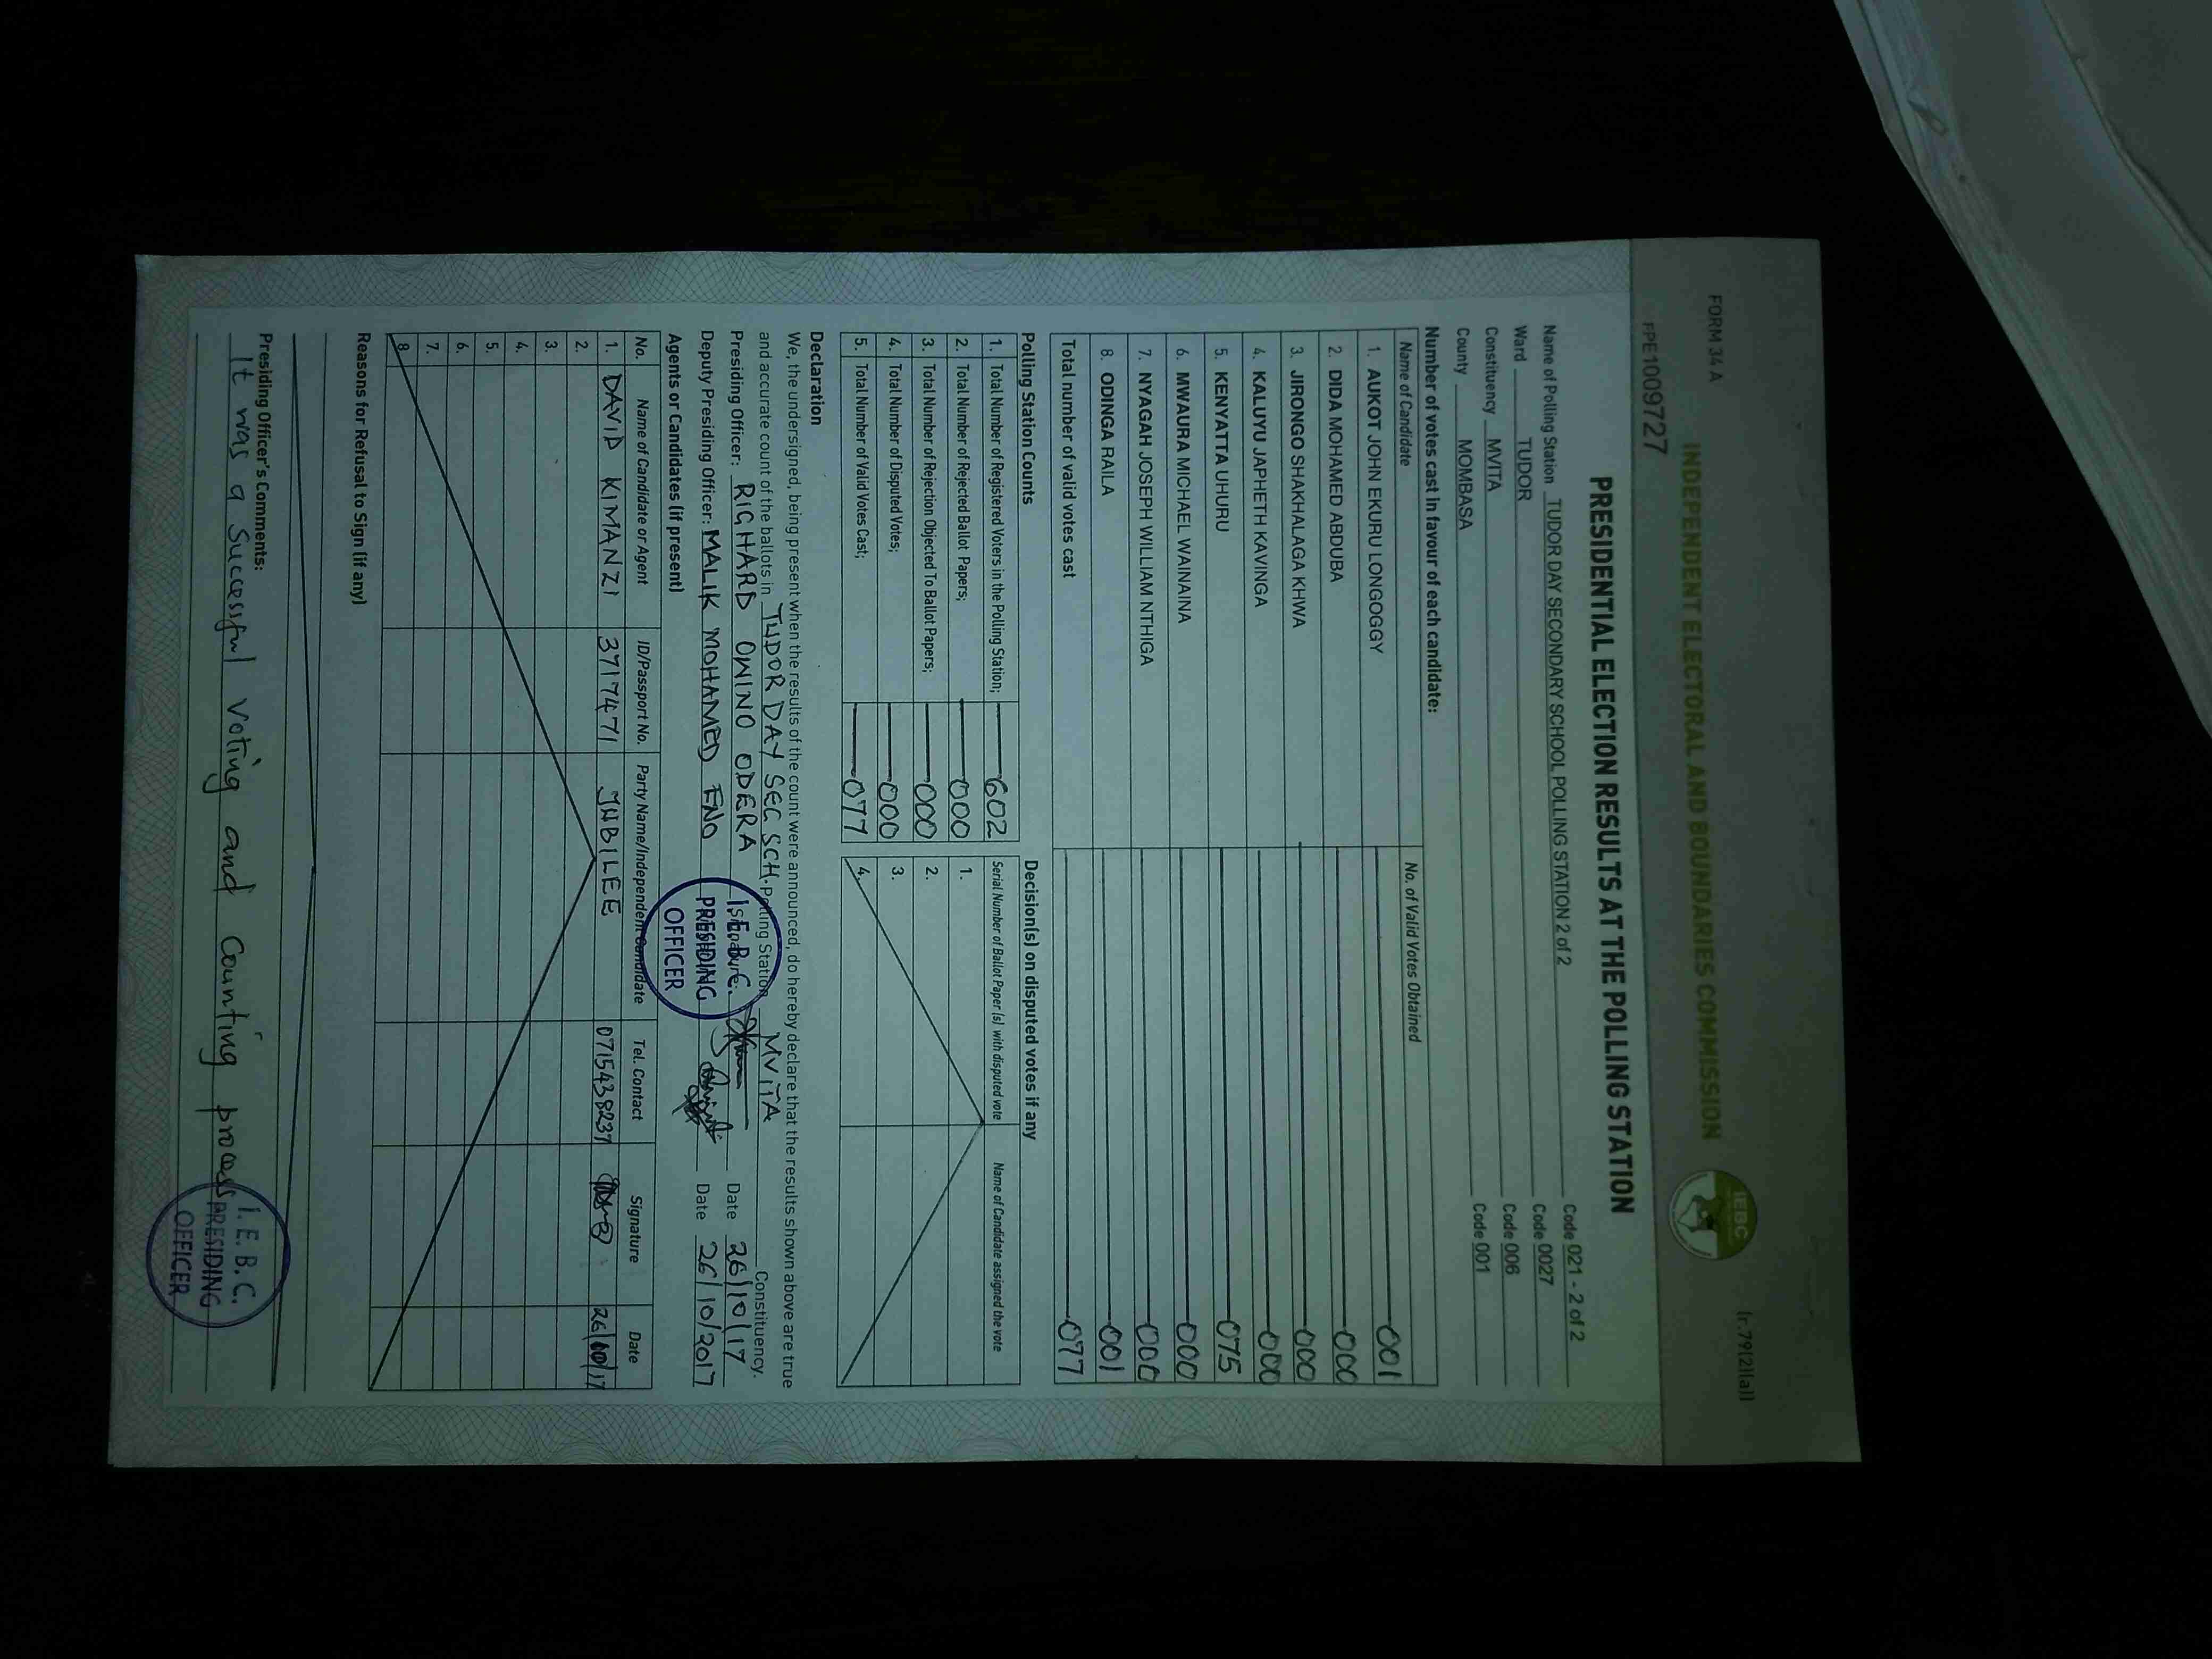 FORM 34 A
(r.79(2)(a))
INDEPENDENT ELECTORAL AND BOUNDARIES COMMISSION
IEBC
FPE1009727
PRESIDENTIAL ELECTION RESULTS AT THE POLLING STATION
Name of Polling Station TUDOR DAY SECONDARY SCHOOL POLLING STATION 2 of 2 Code 021 - 2 of 2
Ward TUDOR Code 0027
Constituency MVITA Code 006
County MOMBASA Code 001
Number of votes cast in favour of each candidate:
Name of Candidate No. of Valid Votes Obtained
1. AUKOT JOHN EKURU LONGOGGY 001
2. DIDA MOHAMED ABDUBA 000
3. JIRONGO SHAKHALAGA KHWA 000
4. KALUYU JAPHETH KAVINGA 000
5. KENYATTA UHURU 075
6. MWAURA MICHAEL WAINAINA 000
7. NYAGAH JOSEPH WILLIAM NTHIGA 000
8. ODINGA RAILA 001
Total number of valid votes cast 077
Polling Station Counts
1. Total Number of Registered Voters in the Polling Station; 602
2. Total Number of Rejected Ballot Papers; 000
3. Total Number of Rejection Objected To Ballot Papers; 000
4. Total Number of Disputed Votes; 000
5. Total Number of Valid Votes Cast; 077
Decision(s) on disputed votes if any
Serial Number of Ballot Paper (s) with disputed vote Name of Candidate assigned the vote
1.
2.
3.
4.
Declaration
We, the undersigned, being present when the results of the count were announced, do hereby declare that the results shown above are true
and accurate count of the ballots in TUDOR DAY SEC SCH. Polling Station MVITA Constituency.
Presiding Officer: RICHARD OWINO ODERA Signature: Date 26/10/17
Deputy Presiding Officer: MALIK MOHAMED Date 26/10/2017
I. E. B. C.
PRESIDING
OFFICER
Agents or Candidates (if present)
No. Name of Candidate or Agent ID/Passport No. Party Name/Independent Candidate Tel. Contact Signature Date
1. DAVID KIMANZI 3717471 JUBILEE 0715438237 26/10/17
2.
3.
4.
5.
6.
7.
8.
Reasons for Refusal to Sign (if any)
Presiding Officer's Comments:
It was a successful voting and counting process
I. E. B. C.
PRESIDING
OFFICER